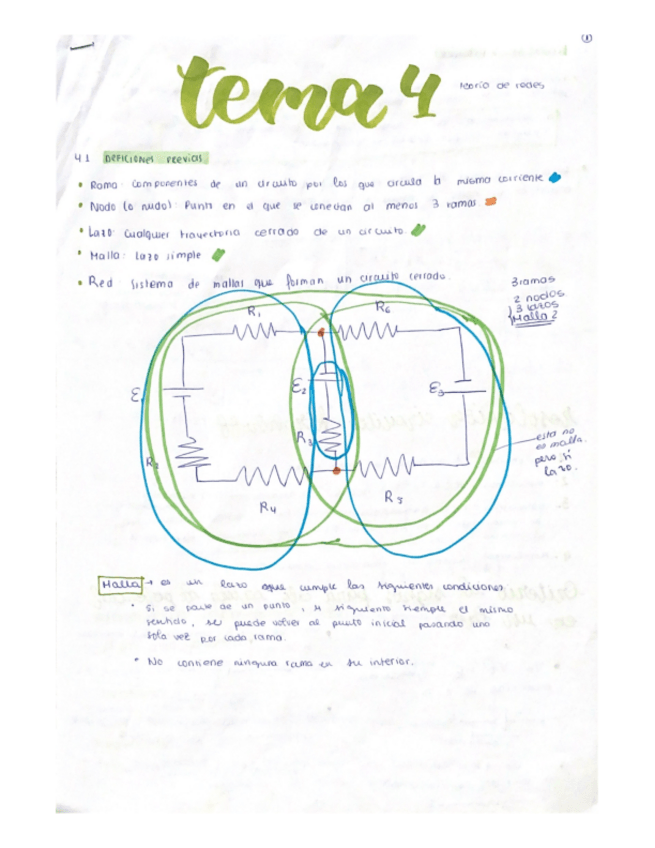 1
tema 4 teoría de redes
4.1 DEFICIONES PREVIAS
• Rama: Componentes de un circuito por los que circula la misma corriente
• Nodo (o nudo): Punto en el que se conectan al menos 3 ramas.
• Lazo: Cualquier trayectoria cerrada de un circuito.
• Malla: lazo simple
• Red: Sistema de mallas que forman un circuito cerrado.
3 ramas
2 nodos
3 lazos
Malla 2
R1
R6
E1
E2
E3
R2
R3
R4
R5
esta no
es malla.
pero sí
lazo.
Malla → es un lazo que cumple las siguientes condiciones
• Si se parte de un punto, y siguiendo siempre el mismo
sentido, se puede volver al punto inicial pasando una
sola vez por cada rama.
• No contiene ninguna rama en su interior.